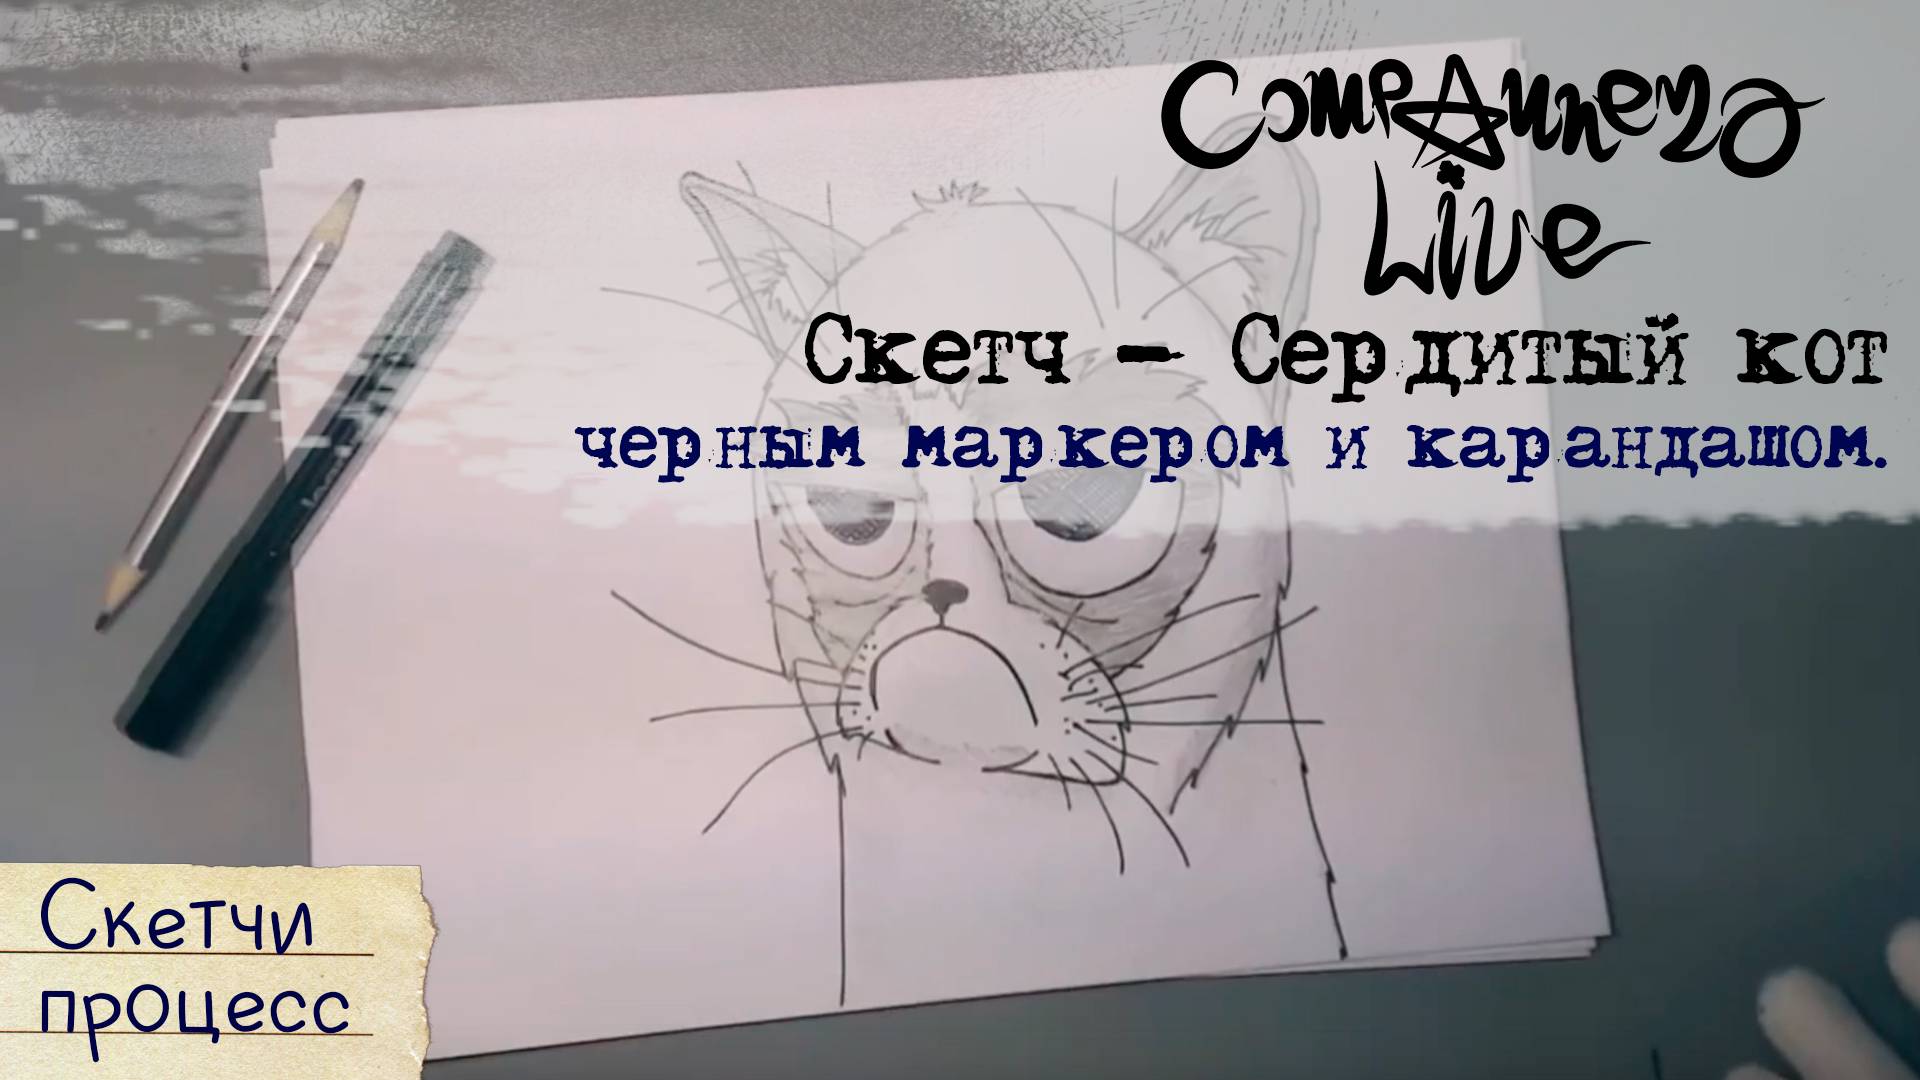 CompAnnero
Live
Скетч – Сердитый кот
черным маркером и карандашом.
Скетчи
процесс